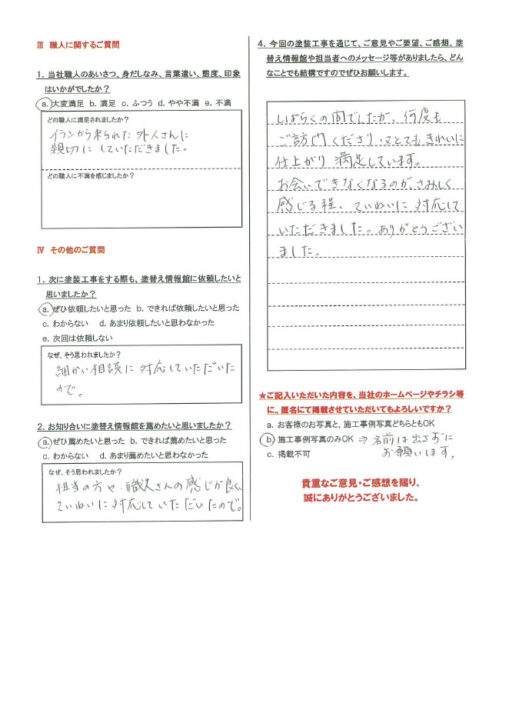 Ⅲ 職人に関するご質問
1. 当社職人のあいさつ、身だしなみ、言葉遣い、態度、印象
はいかがでしたか？
a. 大変満足 b. 満足 c. ふつう d. やや不満 e. 不満
どの職人に満足されましたか？
イランから来られた外人さんに
親切にしていただきました。
どの職人に不満を感じましたか？
Ⅳ その他のご質問
1. 次に塗装工事をする際も、塗替え情報館に依頼したいと
思いましたか？
a. ぜひ依頼したいと思った b. できれば依頼したいと思った
c. わからない d. あまり依頼したいと思わなかった
e. 次回は依頼しない
なぜ、そう思われましたか？
細かい相談に対応していただいた
ので。
2. お知り合いに塗替え情報館を薦めたいと思いましたか？
a. ぜひ薦めたいと思った b. できれば薦めたいと思った
c. わからない d. あまり薦めたいと思わなかった
なぜ、そう思われましたか？
担当の方や、職人さんの感じが良く、
ていねいに対応していただいたので。
4. 今回の塗装工事を通じて、ご意見やご要望、ご感想、塗
替え情報館や担当者へのメッセージ等がありましたら、どん
なことでも結構ですのでぜひお願いします。
しばらくの間でしたが、何度も
ご訪問くださり、とてもきれいに
仕上がり満足しています。
お会いできなくなるのがさみしく
感じる程、ていねいに対応して
いただきました。ありがとうござい
ました。
★ご記入いただいた内容を、当社のホームページやチラシ等
に、匿名にて掲載させていただいてもよろしいですか？
a. お客様のお写真と、施工事例写真どちらともOK
b. 施工事例写真のみOK ⇒ 名前は出さずに
お願いします。
c. 掲載不可
貴重なご意見・ご感想を賜り、
誠にありがとうございました。